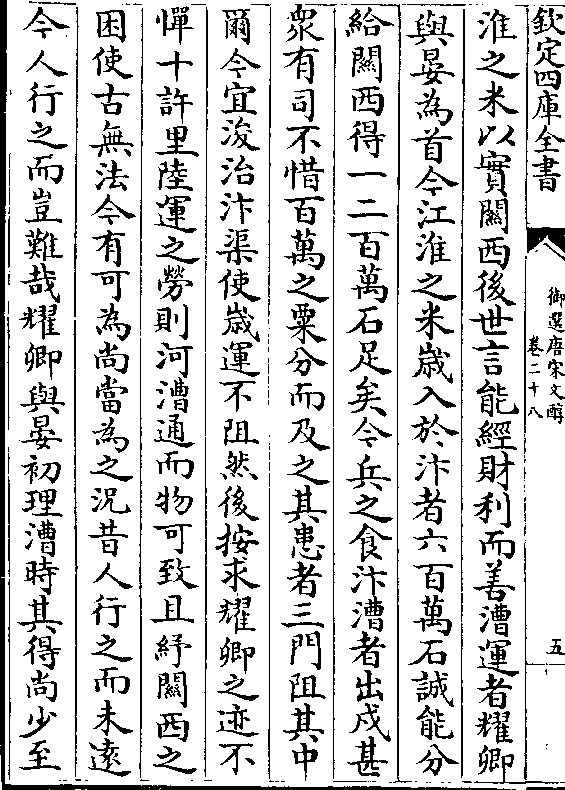 欽定四庫全書
御選唐宋文醇
卷二十八
五
淮之米以實關西後世言能經財利而善漕運者耀卿
與晏為首今江淮之米歲入於汴者六百萬石誠能分
給關西得一二百萬石足矣今兵之食汴漕者出戍甚
衆有司不惜百萬之粟分而及之其患者三門阻其中
爾今宜浚治汴渠使歲運不阻然後按求耀卿之迹不
憚十許里陸運之勞則河漕通而物可致且紓關西之
困使古無法今有可為尚當為之況昔人行之而未遠
今人行之而豈難哉耀卿與晏初理漕時其得尚少至